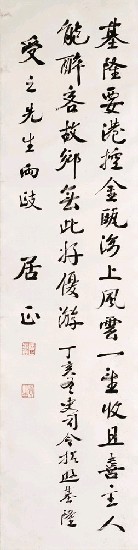 基隆要港控金甌海上風雲一望收且喜主人
能醉客故鄉無此好優游 丁亥冬史司令招遊基隆
受之先生兩政
居正